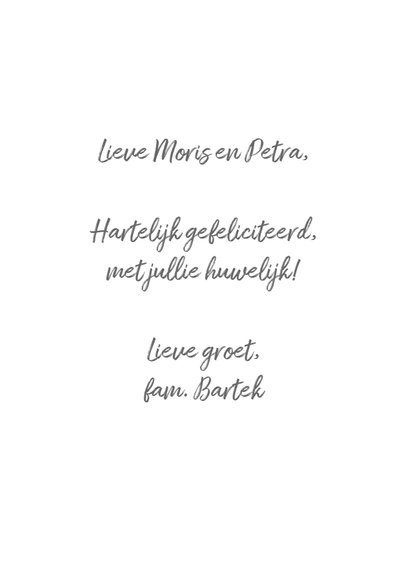 Lieve Moris en Petra,
Hartelijk gefeliciteerd,
met jullie huwelijk!
Lieve groet,
fam. Bartek